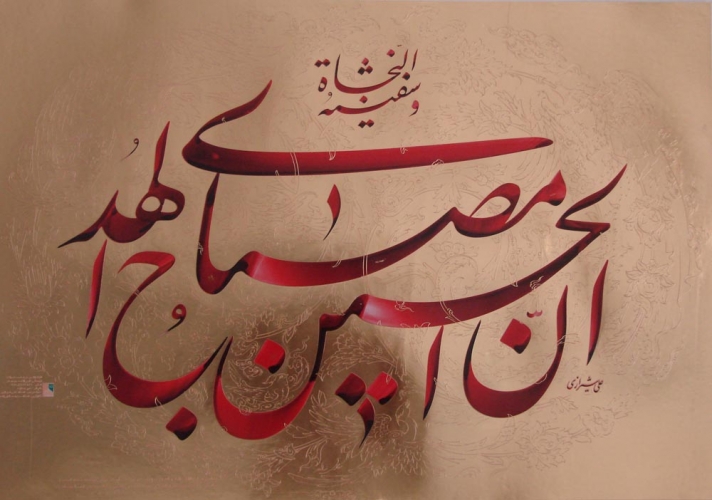 انّ الحسین مصباحُ الهُدی
و سفینهُ
النّجاة
علی شیرازی